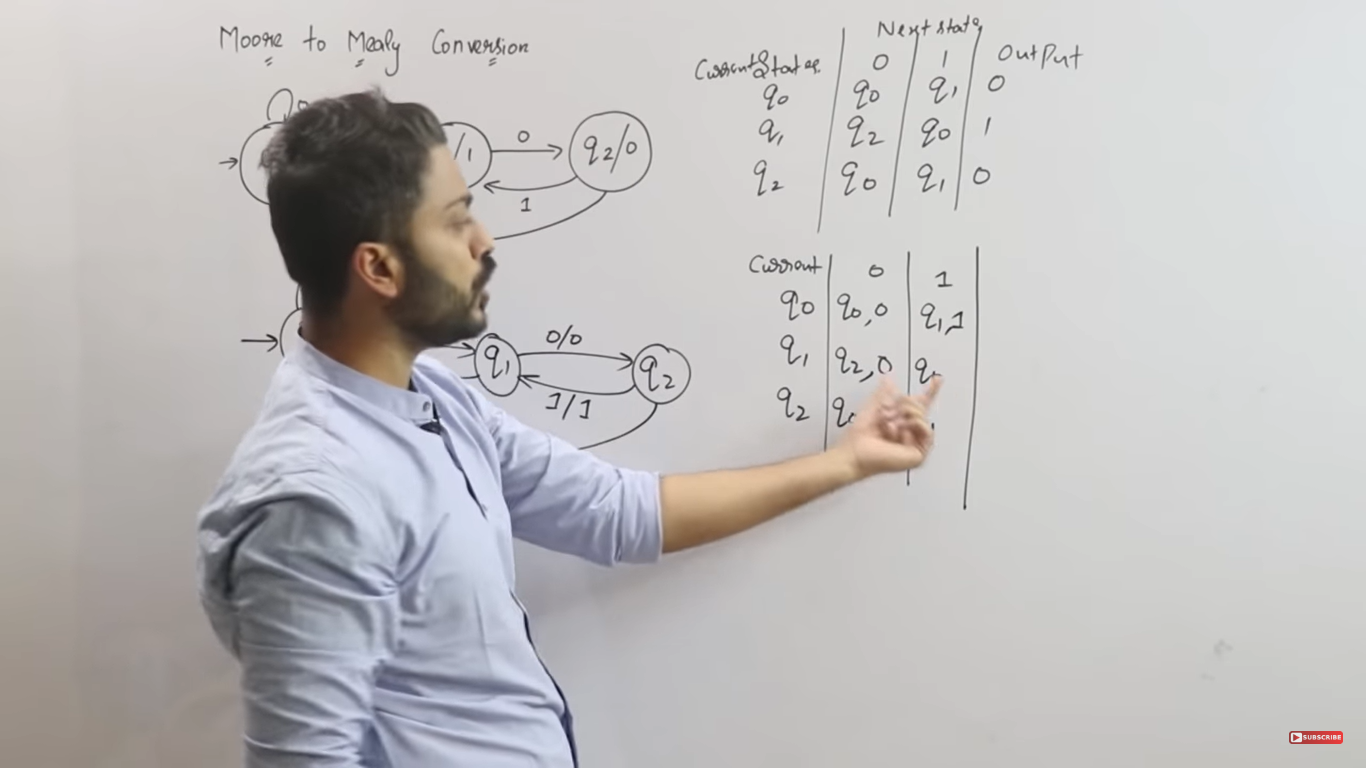 Moore to Mealy Conversion
/1 0 q2/0
1
q1 0/0 q2
1/1
Next state
Current States 0 1 Output
q0 q0 q1 0
q1 q2 q0 1
q2 q0 q1 0
Current 0 1
q0 q0,0 q1,1
q1 q2,0
q2
SUBSCRIBE